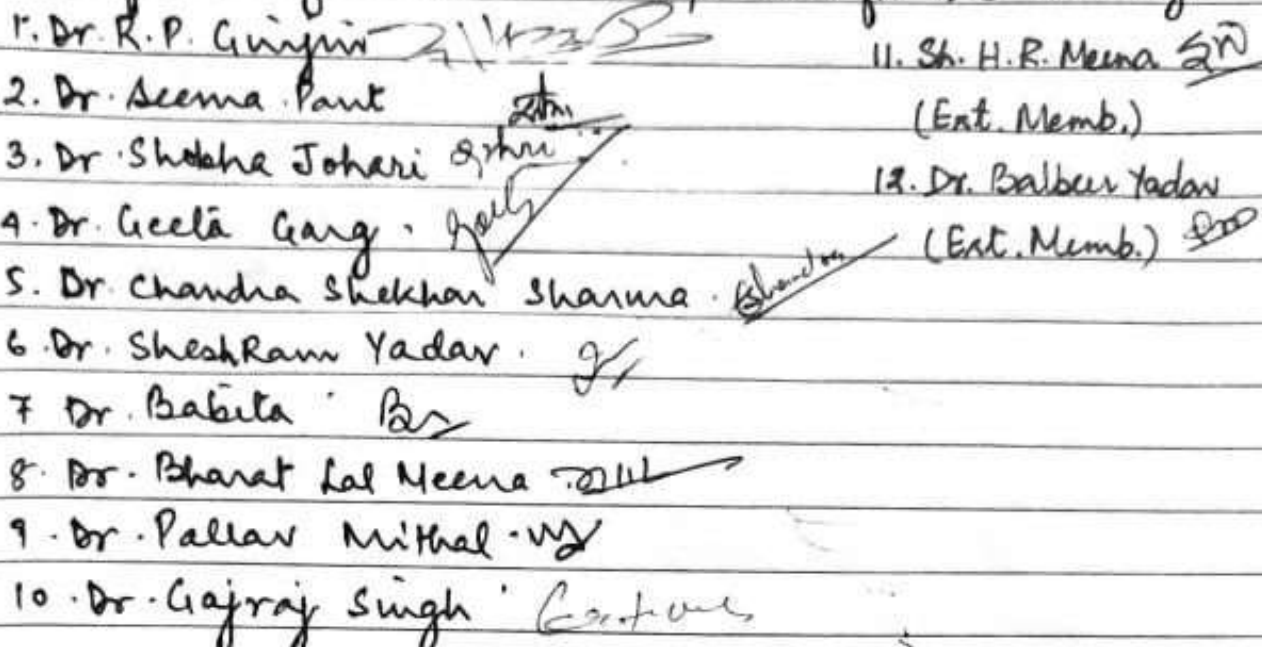 1. Dr. R. P. Gurjar
2. Dr. Seema Pant
3. Dr. Shobha Johari
4. Dr. Geeta Garg.
5. Dr. Chandra Shekhar Sharma.
6. Dr. Sheshram Yadav.
7 Dr. Babita
8. Dr. Bharat Lal Meena
9. Dr. Pallav Mithal.
10. Dr. Gajraj Singh
11. Sh. H.R. Meena
(Ext. Memb.)
12. Dr. Balbeer Yadav
(Ext. Memb.)